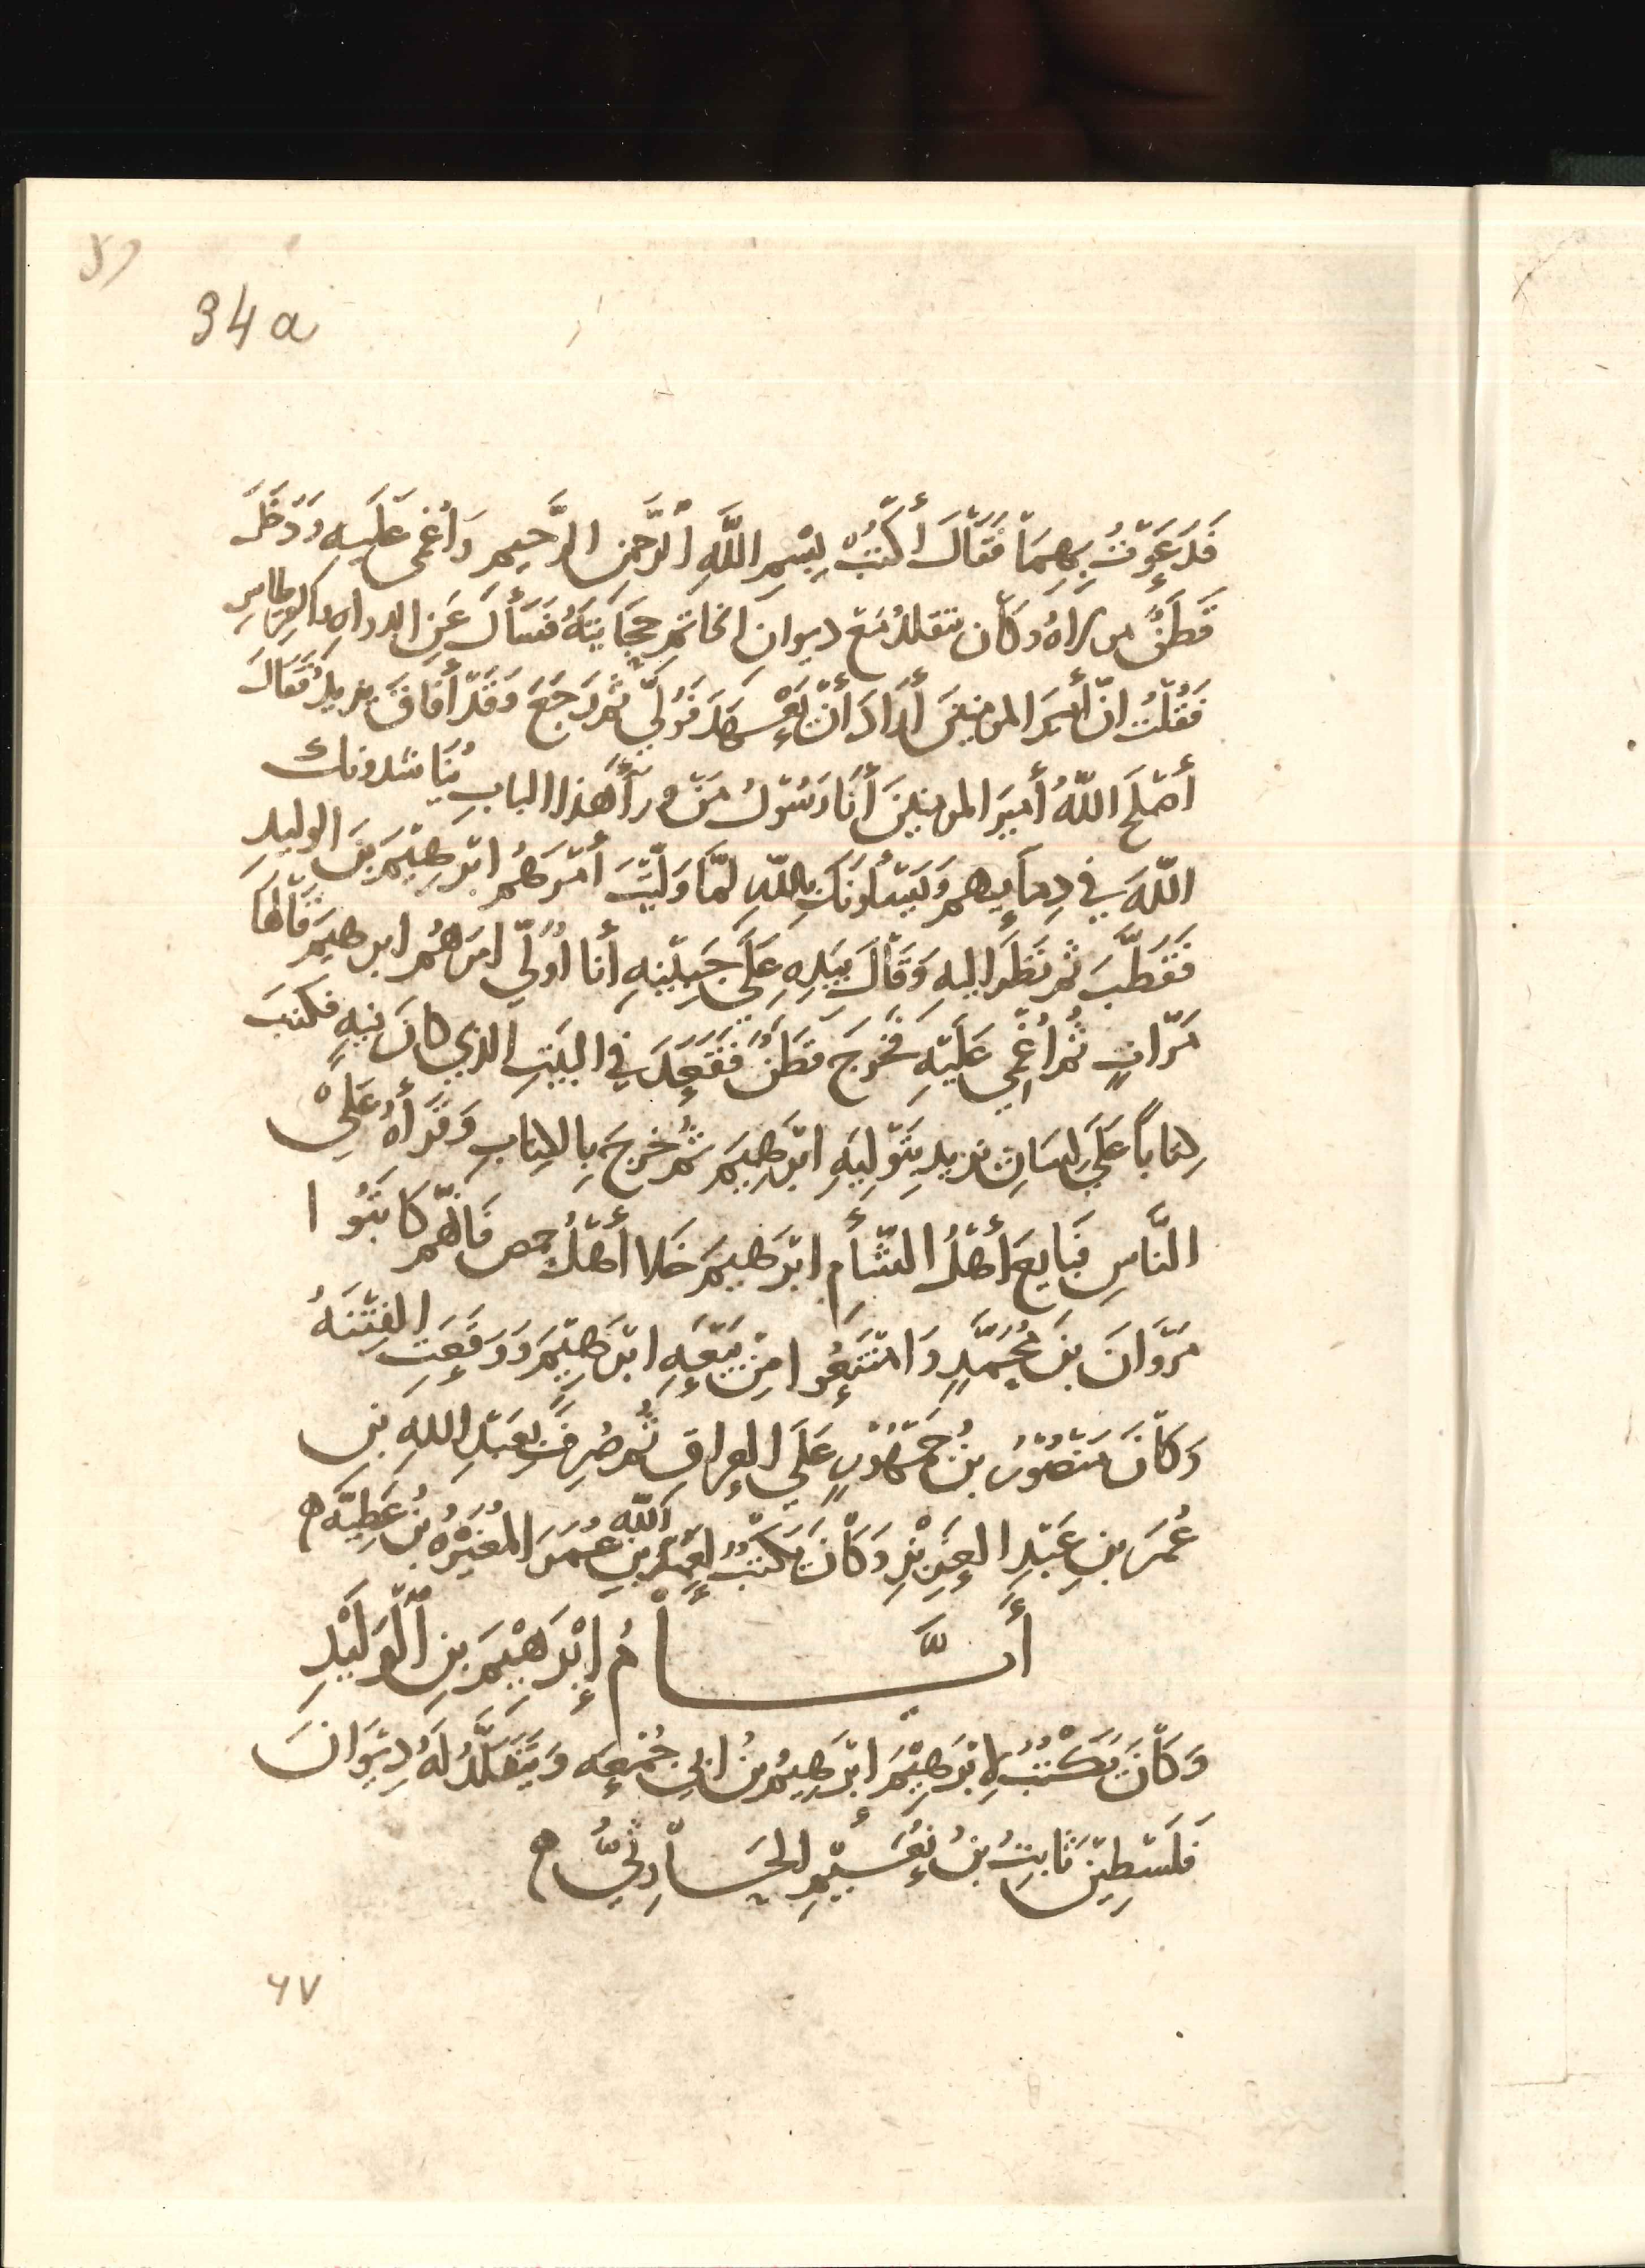 34a
فَدَعَوْتُ بِهِمَا فَقَالَ أكْتُبْ بِسْمِ اللَّهِ الرَّحمنِ الرَّحِيمِ وَاُغْمِىَ عَلَيهِ وَدَخَلَ
قَطَنٌ من رَاهُ وكَان يتقلدُ مَعَ ديوان الخاتمِ حِجَابَتَهُ فَسَأَلَ عَنِ الدواهِ والقِرطاسِ
فَقُلْتُ انّ أَمِيرَ المومنِينَ أَرَادَ أَنْ يَعْهَدَ فَوَلَّي ثُم رَجَعَ وَقَدْ أَفَاقَ يزيدُ فَقَالَ
أَصْلَحَ اللَّهُ أَمِيرَ المومنِينَ أَنَا رَسُوْلُ مَنْ ورَآَ هَذا البابِ يُنَاشدونكَ
اللَّهَ فِي دِمآيِهم وَيَسْأَلونَكَ بِاللّهِ لمّا وَلَّيْتَ أمْرَهُم ابْرهِيْمَ بنَ الوليدِ
فَقَطَّبَ ثم نَظَرَ اليهِ وَقَالَ بِيَدِهِ عَلَي جَبِيْنِهِ أنا اُوَلّي امرَهُم ابرهيمَ قَالَهَا
مَرّاتٍ ثُم اُغْمِي عَلَيْهِ فَخَرجَ قَطَنٌ فَقَعَدَ فِي البَيْتِ الذي كانَ فيهِ فكتبَ
كِتاباً عَلَي لِسَانِ يزيدِ بِتَوْلِيَةِ ابْرَهِيمَ ثم خرجَ بِالكِتابِ وَقَرَأهُ عَلَيْ
النَّاسِ فَبَايعَ أهْلُ الشَّأمِ ابْرَهيمَ خَلا أَهْلُ حمص فَانّهُم كَاتَبُوا
مَرْوَانَ بنَ مُحَمَّدٍ وَامْتَنَعُوا مِنْ بَيْعَةِ ابْرَهِيْمَ وَوَقَعَتِ الفِتْنَةُ
وَكَانَ مَنْصُوْرُ بنُ جَمْهُوْرٍ عَلَي العِراقِ ثُم صُرِفَ بِعَبْدِ اللهِ بنِ
عُمَرَ بنِ عَبْدِ العَزِيْزِ وَكَانَ يَكْتُبُ لِعَبْدِ اللّه بنِ عُمَرَ المُغِيْرَةُ بنُ عَطِيّةَ ه
أَيَّـــامُ إِبْرَهِيْمَ بنِ الْوَلِيْدِ
وَكَانَ يَكْتُبُ لِإبْرَهِيْمَ ابْرَهِيْمُ بنُ ابي جُمْعَه وَيَتَقَلَّدُ لَهُ دِيْوَانَ
فَلَسْطِيْنَ ثَابِتُ بنُ نُعَيْمٍ الجُذَامِيُّ ه
٦٧